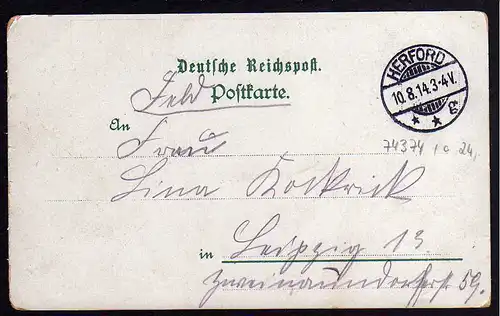 Deutsche Reichspost.
Feld Postkarte.
HERFORD
10.8.14.3-4V.
* * g
An
Frau
74374
Lina Kockrick
in Leipzig 13.
Zweinaundorferstr. 59.